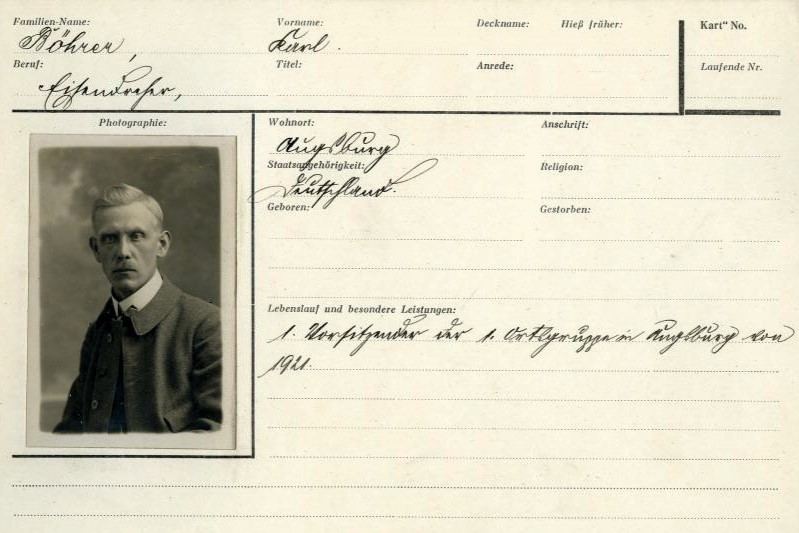 Familien-Name: Vorname: Deckname: Hieß früher: Kart" No.
Böhrer, Karl.
Beruf: Titel: Anrede: Laufende Nr.
Eisendreher,
Photographie:
Wohnort: Anschrift:
Augsburg
Staatsangehörigkeit: Religion:
Deutschland.
Geboren: Gestorben:
Lebenslauf und besondere Leistungen:
1. Vorsitzender der 1. Ortsgruppe in Augsburg von
1921.